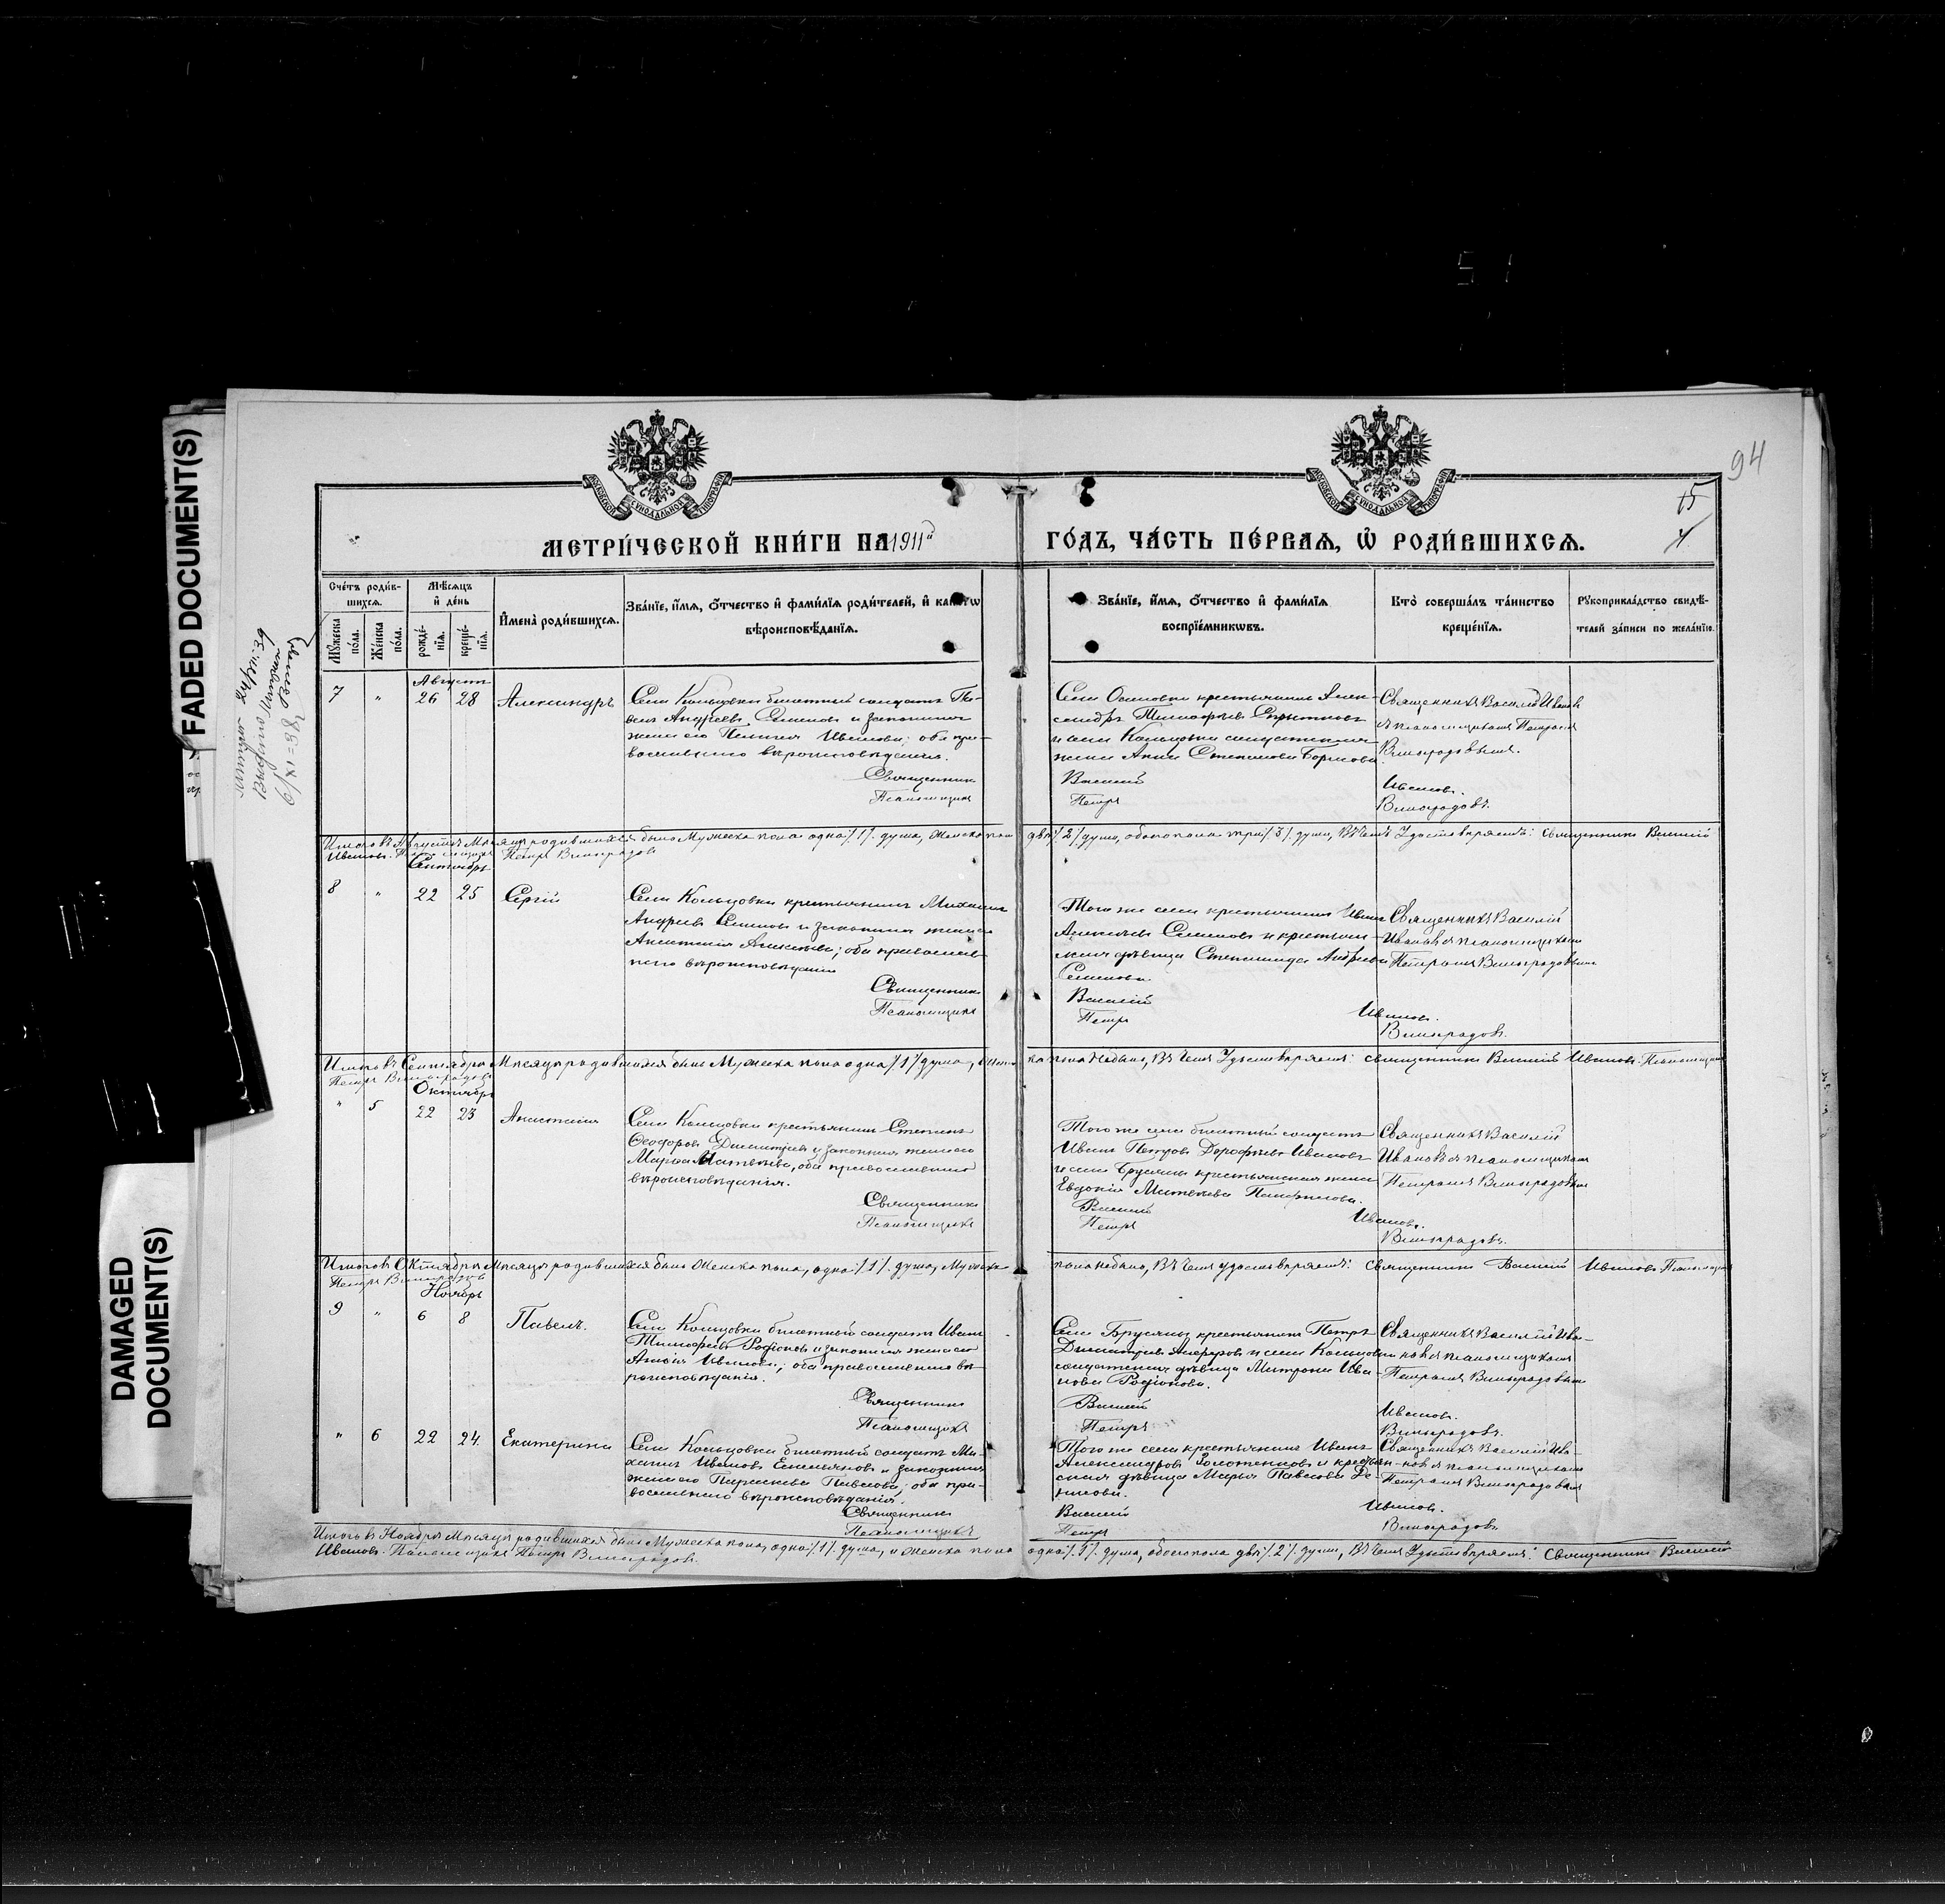 FADED DOCUMENT(S)
DAMAGED
DOCUMENT(S)
94
15
МОСКОВСКОЙ СѴНОДАЛЬНОЙ ТИПОГРАФІИ
МОСКОВСКОЙ СѴНОДАЛЬНОЙ ТИПОГРАФІИ
МЕТРИ́ЧЕСКОЙ КНИ́ГИ НА 1911й ГО́ДЪ, ЧА́СТЬ ПЕ́РВАЯ, Ѽ РОДИ́ВШИХСЯ.
Сче́тъ роди́в-
шихся.
Мꙋ́жеска по́ла.
Же́нска по́ла.
Мѣ́сяцъ
и҆ де́нь
рожде́-
нїя.
креще́-
нїя.
И҆мена̀ роди́вшихся.
Зва́нїе, и҆́мя, ѻ҆́тчество и҆ фами́лїя роди́телей, и҆ како́гѡ
вѣроисповѣ́данїя.
Зва́нїе, и҆́мя, ѻ҆́тчество и҆ фами́лїя
воспрїе́мникѡвъ.
Кто̀ соверша́лъ та́инство
креще́нїя.
Рꙋкоприкла́дство свидѣ́-
телей за́писи по жела́нїю.
Августъ
7 " 26 28 Александръ
Села Кольцовки билетный солдатъ Па-
велъ Андреевъ Семеновъ и законная
жена его Пелагія Иванова; оба пра-
вославнаго вѣроисповѣданія.
Священникъ
Псаломщикъ
Села Осиновки крестьянинъ Алек-
сандръ Тимофѣевъ
и села Кольцовки солдатская
жена Анна Степанова Борисова.
Василій
Петръ
Священникъ Василій Ивановъ
съ псаломщикомъ Петромъ
Виноградовымъ.
Ивановъ.
Виноградовъ.
Итого въ Августѣ Мѣсяцѣ родившихся было Мужеска пола одна /1/ душа, Женска пола двѣ /2/ души, обоего пола три /3/ души, Въ чемъ Удостовѣряемъ: Священникъ Василій
Ивановъ. Псаломщикъ Петръ Виноградовъ
Сентябрь
8 " 22 25 Сергій
Села Кольцовки крестьянинъ Михаилъ
Андреевъ Семеновъ и законная жена его
Анастасія Алексѣева; оба православ-
наго вѣроисповѣданія
Священникъ
Псаломщикъ
Того же села крестьянинъ Иванъ
Алексѣевъ Семеновъ и крестьян-
ская дѣвица Степанида Андреева
Семенова.
Василій
Петръ
Священникъ Василій
Ивановъ съ псаломщикомъ
Петромъ Виноградовымъ
Ивановъ.
Виноградовъ.
Итого въ Сентябрѣ Мѣсяцѣ родившихся было Мужеска пола одна /1/ душа, Женска пола небыло, Въ чемъ Удостовѣряемъ: Священникъ Василій Ивановъ. Псаломщикъ
Петръ Виноградовъ
Октябрь
" 5 22 23 Анастасія
Села Кольцовки крестьянинъ Степанъ
Ѳеодоровъ Димитріевъ и законная жена его
Марѳа Матвѣева, оба православнаго
вѣроисповѣданія.
Священникъ
Псаломщикъ
Того же села билетный солдатъ
Иванъ Петровъ Дорофѣевъ Ивановъ
и села Брусяны крестьянская жена
Евдокія Матвѣева Панфилова.
Василій
Петръ
Священникъ Василій
Ивановъ съ псаломщикомъ
Петромъ Виноградовымъ
Ивановъ.
Виноградовъ.
Итого въ Октябрѣ Мѣсяцѣ родившихся было Женска пола, одна /1/ душа, Мужеска пола небыло, Въ чемъ удостовѣряемъ: Священникъ Василій Ивановъ. Псаломщикъ
Петръ Виноградовъ
Ноябрь
9 " 6 8 Павелъ.
Села Кольцовки билетный солдатъ Иванъ
Тимофѣевъ Родіоновъ и законная жена его
Иванова; оба православнаго вѣ-
роисповѣданія.
Священникъ
Псаломщикъ
Села Брусяны крестьянинъ Петръ
Димитріевъ и села Кольцовки
солдатская дѣвица Матрона Ива-
нова Родіонова.
Василій
Петръ
Священникъ Василій Ива-
новъ съ псаломщикомъ
Петромъ Виноградовымъ
Ивановъ.
Виноградовъ.
" 6 22 24. Екатерина
Села Кольцовки билетный солдатъ Ми-
хаилъ Ивановъ Емельяновъ и законная
жена его Параскева Павлова; оба пра-
вославнаго вѣроисповѣданія.
Священникъ
Псаломщикъ
Того же села крестьянинъ Иванъ
Александровъ и крестьян-
ская дѣвица Марья Павлова Де-
нисова.
Василій
Петръ
Священникъ Василій Ива-
новъ съ псаломщикомъ
Петромъ Виноградовымъ
Ивановъ.
Виноградовъ.
Итого въ Ноябрѣ Мѣсяцѣ родившихся было Мужеска пола, одна /1/ душа, и Женска пола одна /1/ душа, обоего пола двѣ /2/ души, Въ чемъ Удостовѣряемъ: Священникъ Василій
Ивановъ. Псаломщикъ Петръ Виноградовъ.